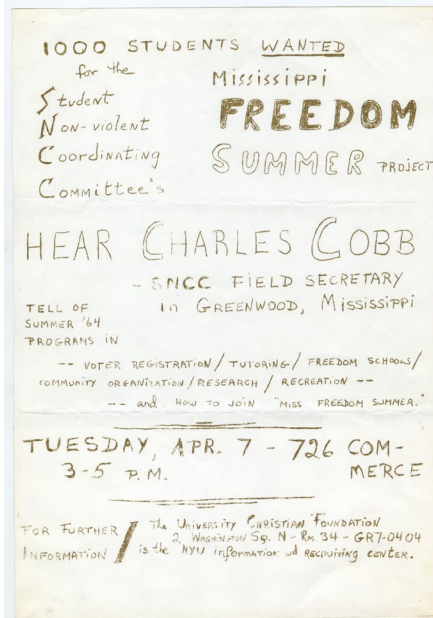 1000 STUDENTS WANTED
for the
Student
Non-violent
Coordinating
Committee's
Mississippi
FREEDOM
SUMMER PROJECT
HEAR CHARLES COBB
- SNCC FIELD SECRETARY
in GREENWOOD, Mississippi
TELL OF
SUMMER '64
PROGRAMS IN
-- VOTER REGISTRATION / TUTORING / FREEDOM SCHOOLS /
COMMUNITY ORGANIZATION / RESEARCH / RECREATION --
-- and HOW TO JOIN "MISS FREEDOM SUMMER."
TUESDAY, APR. 7 - 726 COM-
3-5 P.M. MERCE
FOR FURTHER
INFORMATION
The UNIVERSITY CHRISTIAN FOUNDATION
2 WASHINGTON SQ. N - RM. 34 - GR7-0404
is the NYU information and RECRUITING CENTER.